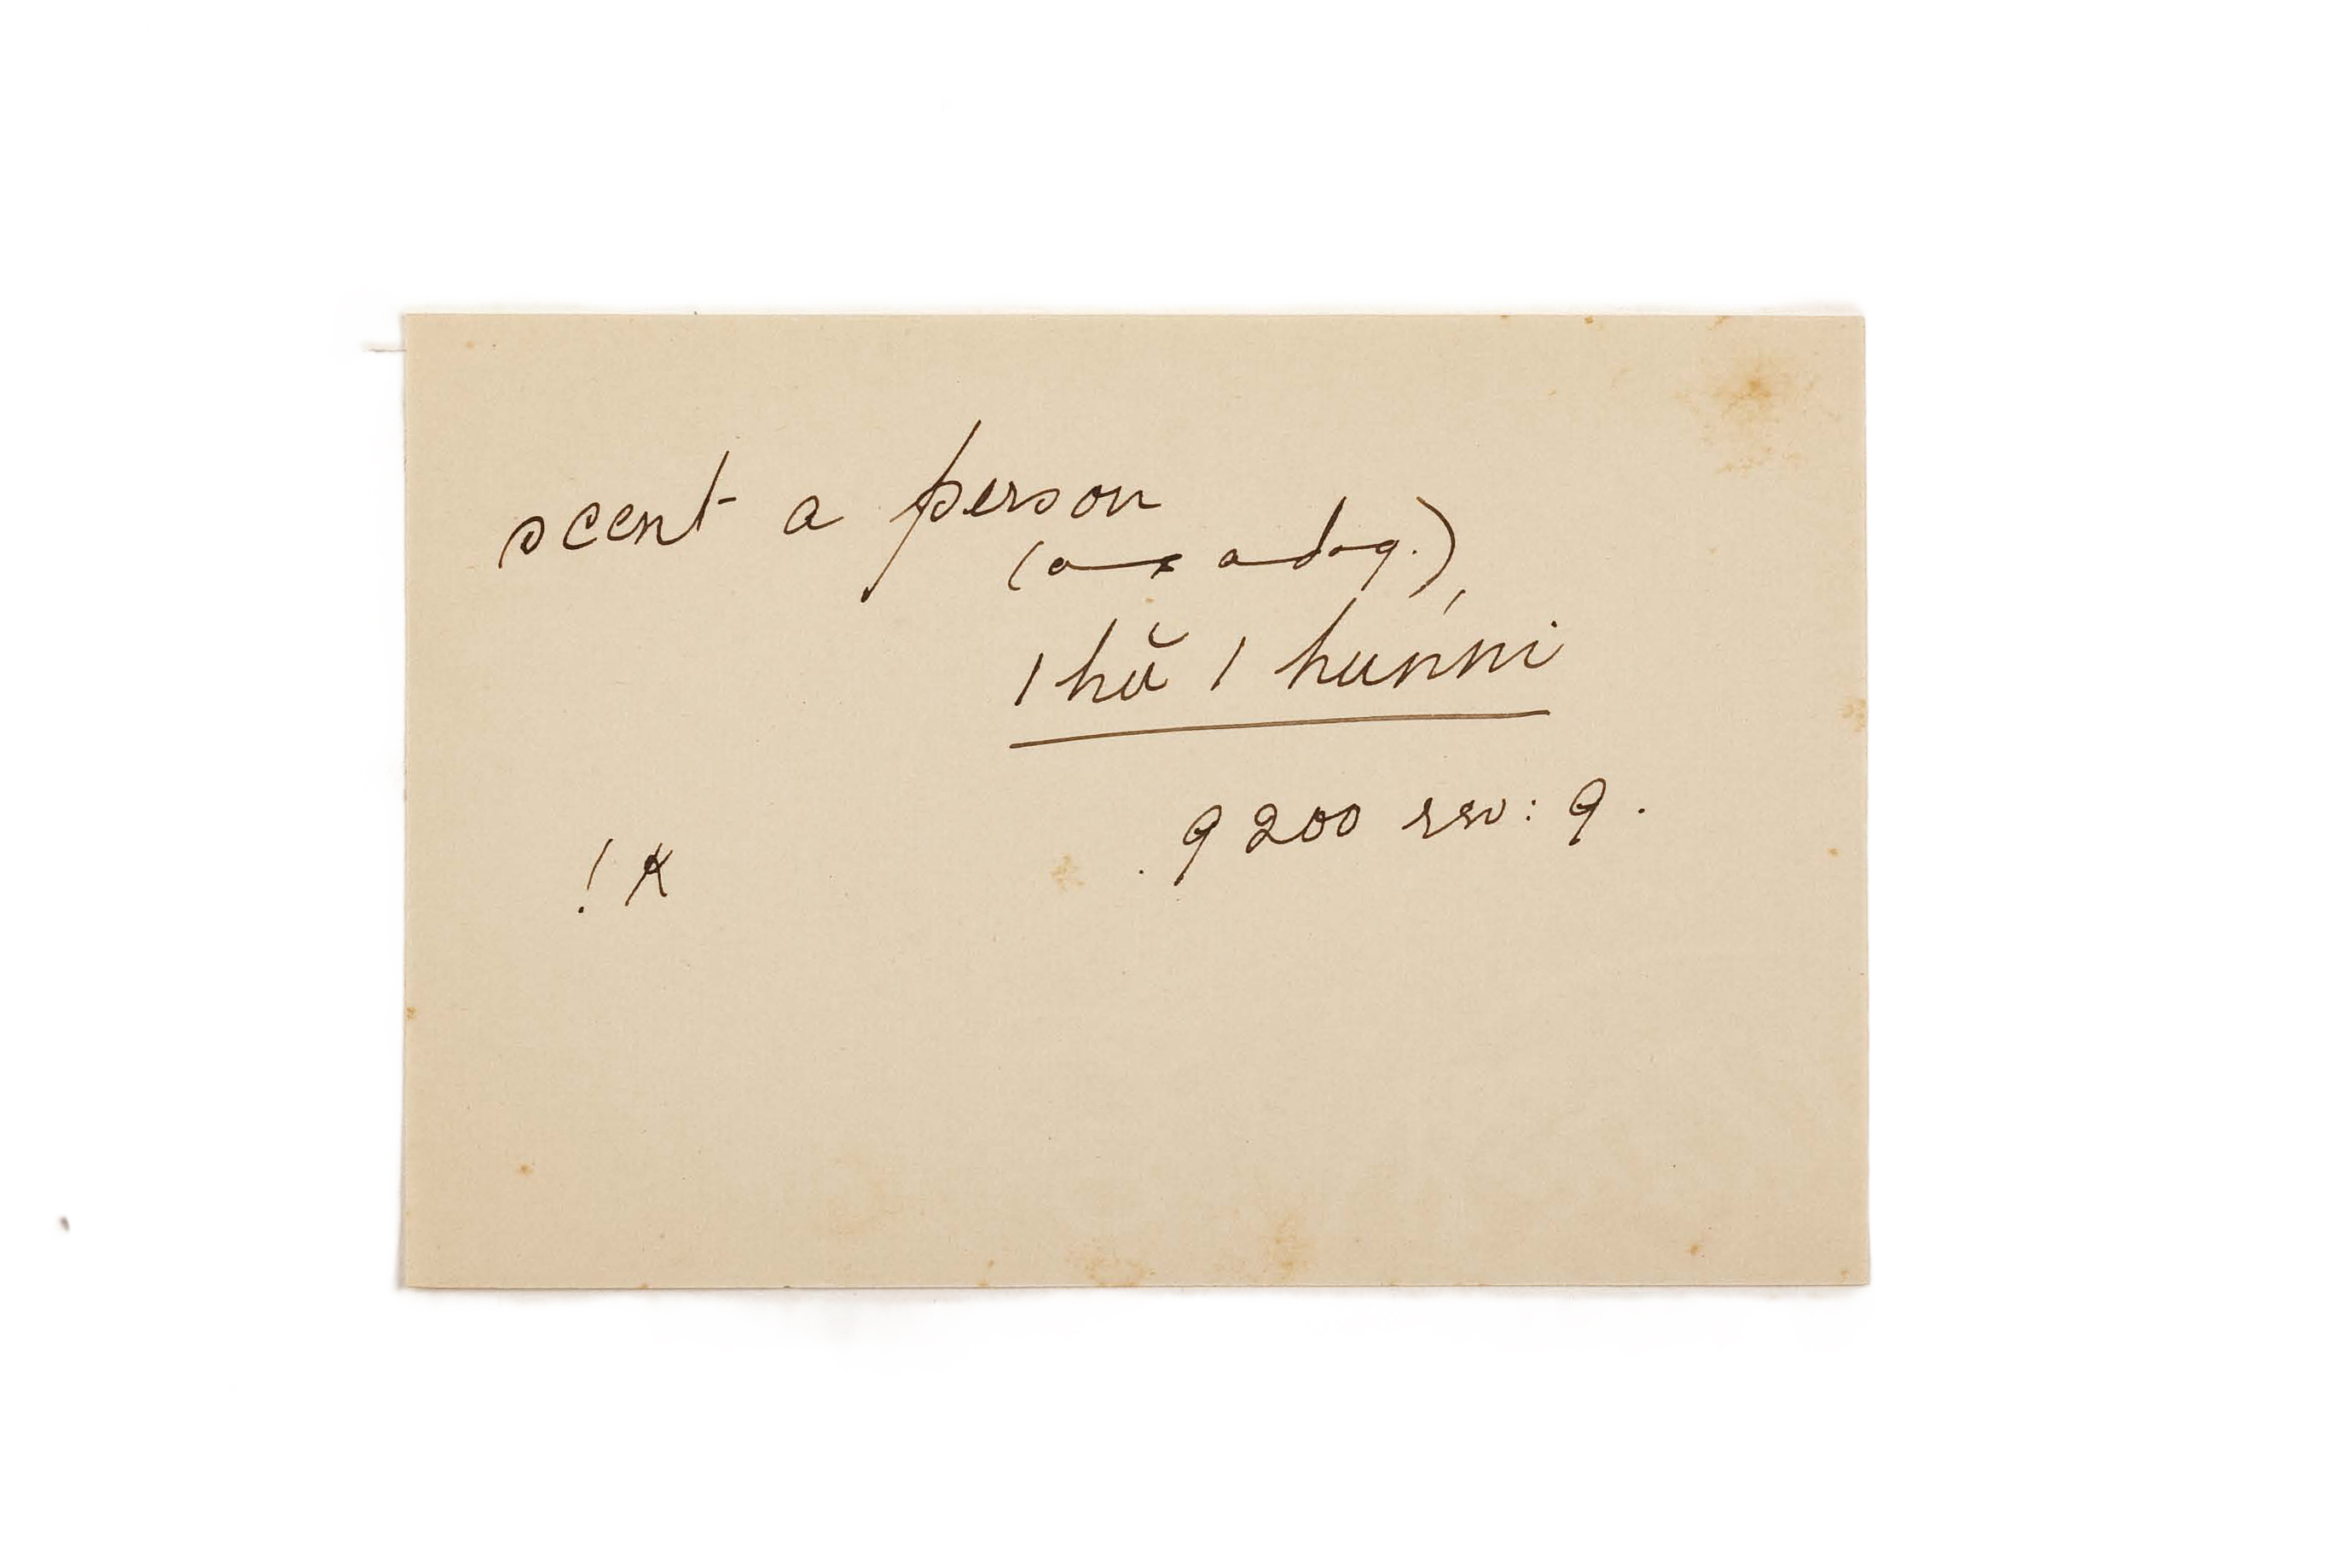 scent a person
(as a dog.)
|hŭ |huńni
9200 rev: 9.
! K